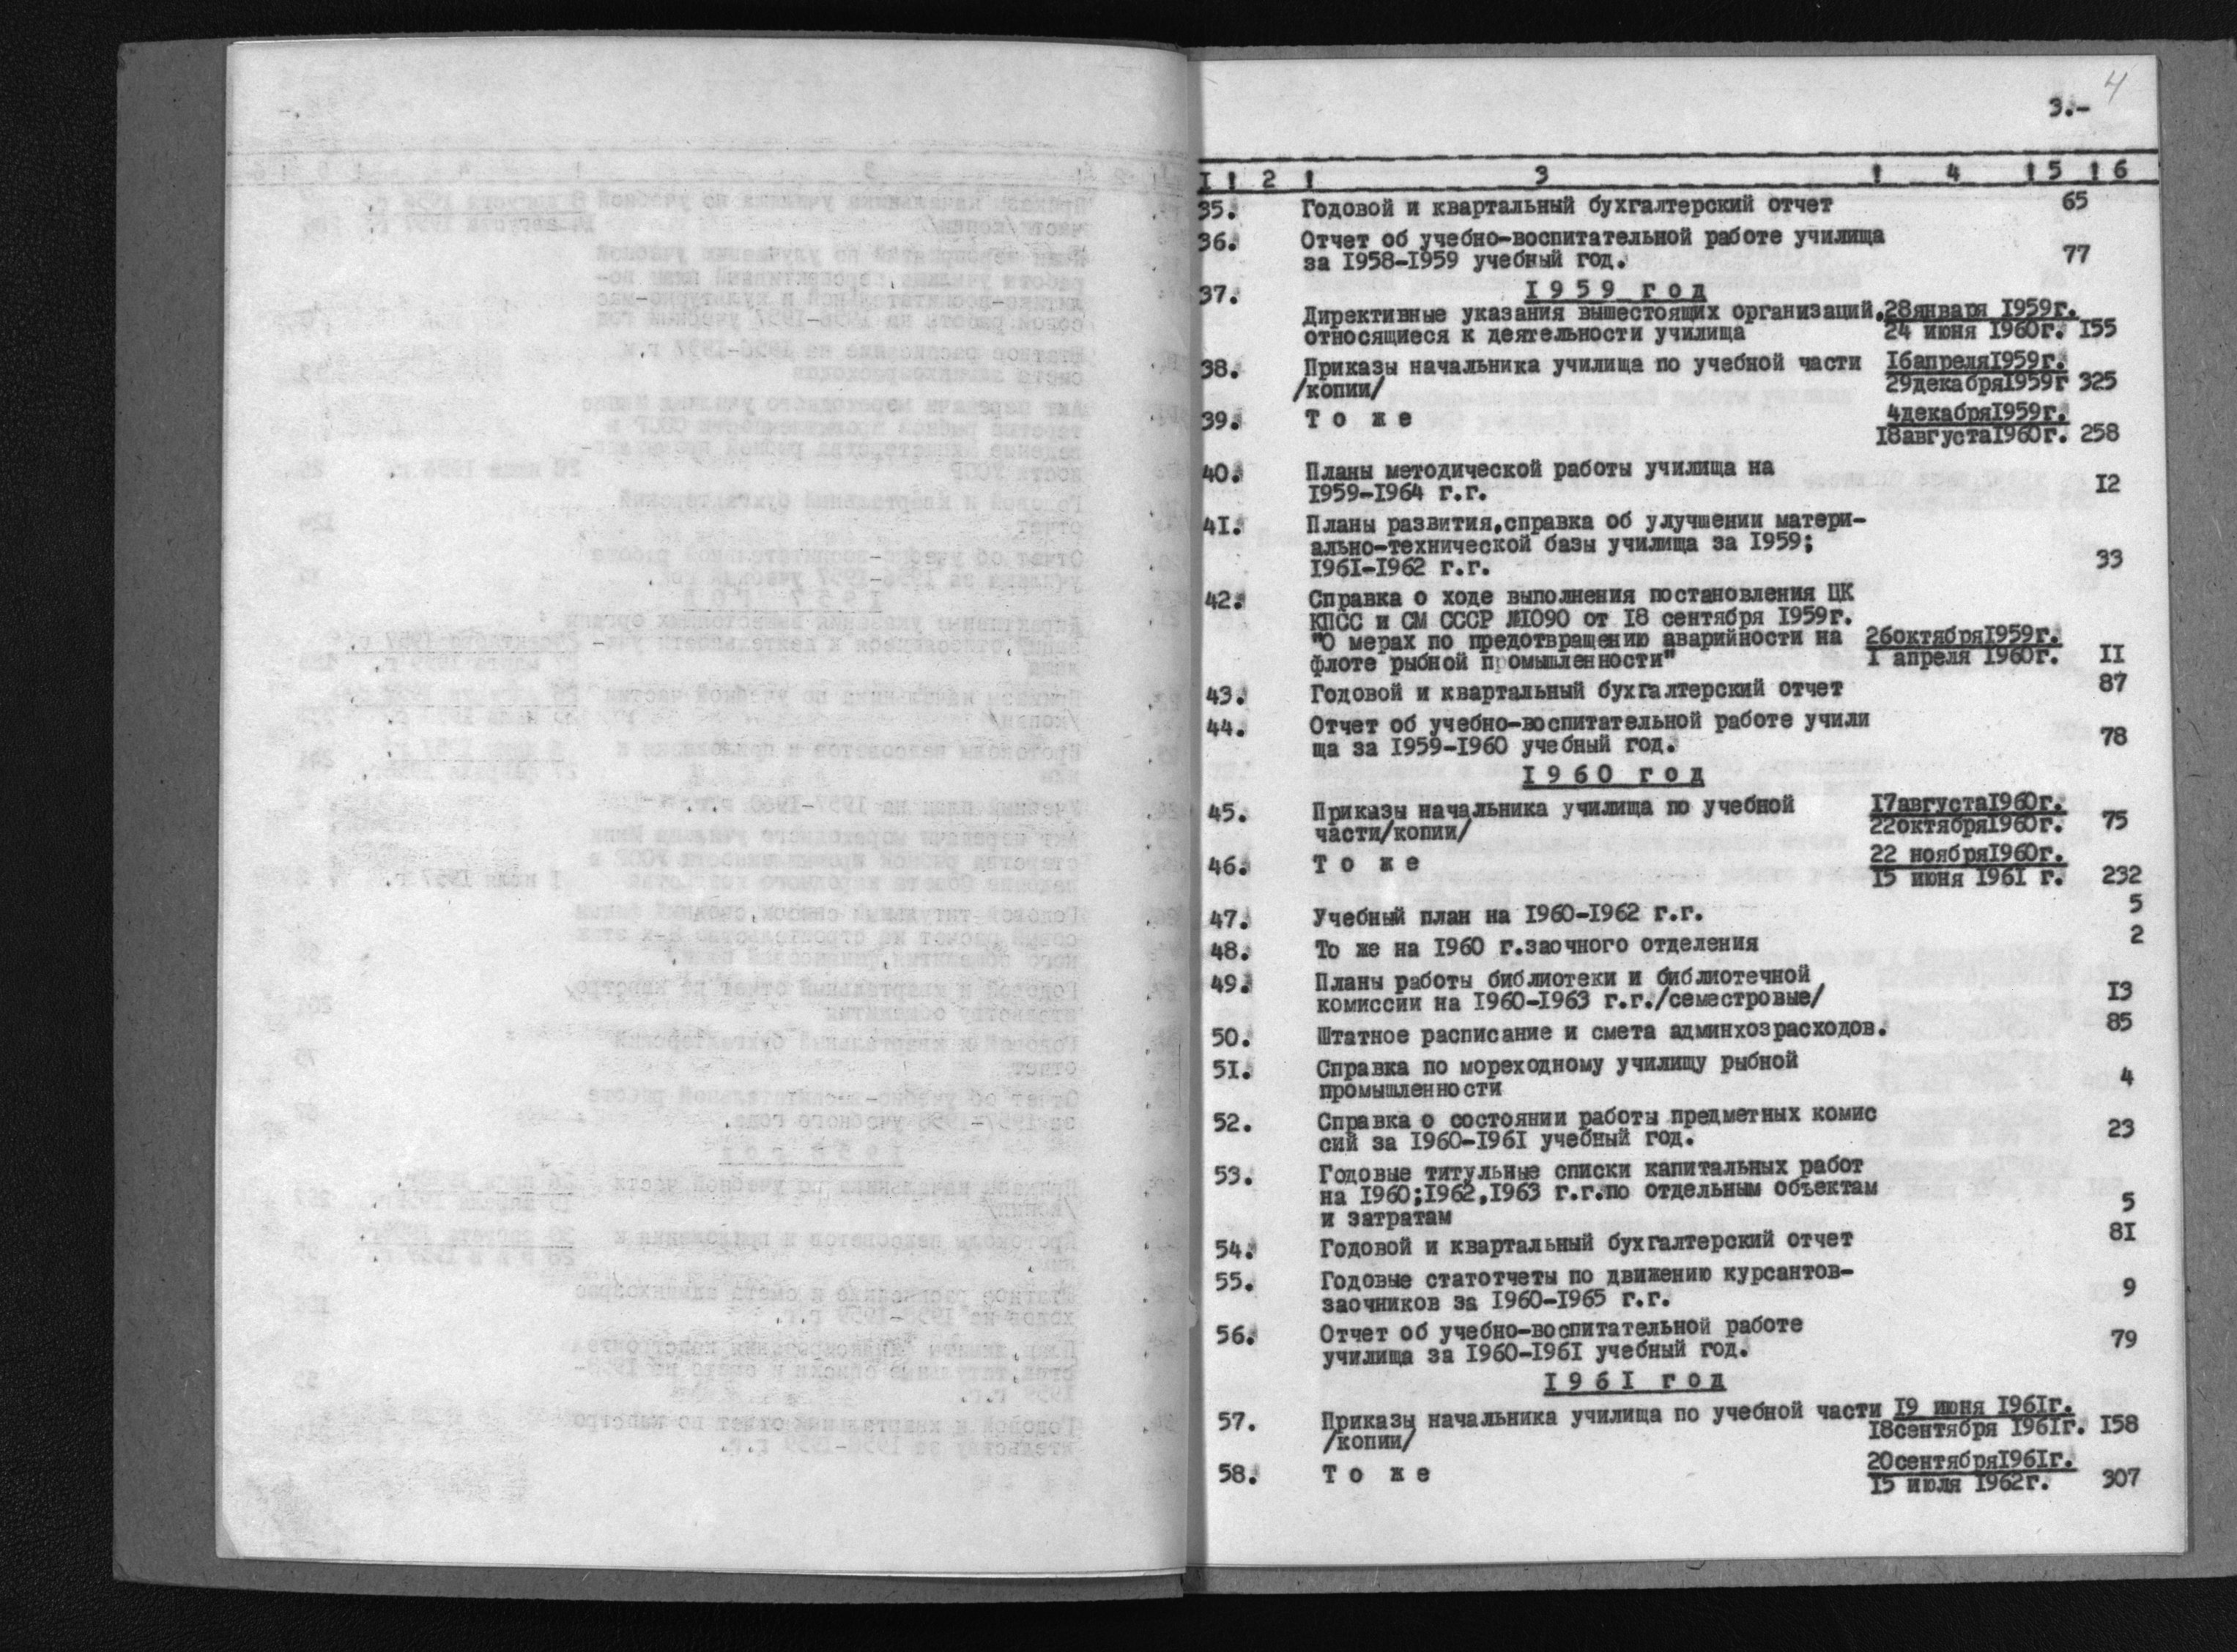 4
3.-
I ! 2 ! 3 ! 4 ! 5 ! 6
35. Годовой и квартальный бухгалтерский отчет 65
36. Отчет об учебно-воспитательной работе училища
за 1958-1959 учебный год. 77
1959 год
37. Директивные указания вышестоящих организаций, 28января 1959г.
относящиеся к деятельности училища 24 июня 1960г. 155
38. Приказы начальника училища по учебной части 16апреля1959г.
/копии/ 29декабря1959г 325
39. То же 4декабря1959г.
18августа1960г. 258
40. Планы методической работы училища на
1959-1964 г.г. 12
41. Планы развития,справка об улучшении матери-
ально-технической базы училища за 1959;
1961-1962 г.г. 33
42. Справка о ходе выполнения постановления ЦК
КПСС и СМ СССР №1090 от 18 сентября 1959г.
"О мерах по предотвращению аварийности на 26октября1959г.
флоте рыбной промышленности" 1 апреля 1960г. 11
43. Годовой и квартальный бухгалтерский отчет 87
44. Отчет об учебно-воспитательной работе учили
ща за 1959-1960 учебный год. 78
1960 год
45. Приказы начальника училища по учебной 17августа1960г.
части/копии/ 22октября1960г. 75
46. То же 22 ноября1960г.
15 июня 1961 г. 232
47. Учебный план на 1960-1962 г.г. 5
48. То же на 1960 г.заочного отделения 2
49. Планы работы библиотеки и библиотечной
комиссии на 1960-1963 г.г./семестровые/ 13
50. Штатное расписание и смета админхозрасходов. 85
51. Справка по мореходному училищу рыбной
промышленности 4
52. Справка о состоянии работы предметных комис
сий за 1960-1961 учебный год. 23
53. Годовые титульные списки капитальных работ
на 1960;1962,1963 г.г.по отдельным объектам
и затратам 5
54. Годовой и квартальный бухгалтерский отчет 81
55. Годовые статотчеты по движению курсантов-
заочников за 1960-1965 г.г. 9
56. Отчет об учебно-воспитательной работе
училища за 1960-1961 учебный год. 79
1961 год
57. Приказы начальника училища по учебной части 19 июня 1961г.
/копии/ 18сентября 1961г. 158
58. То же 20сентября1961г.
15 июля 1962г. 307